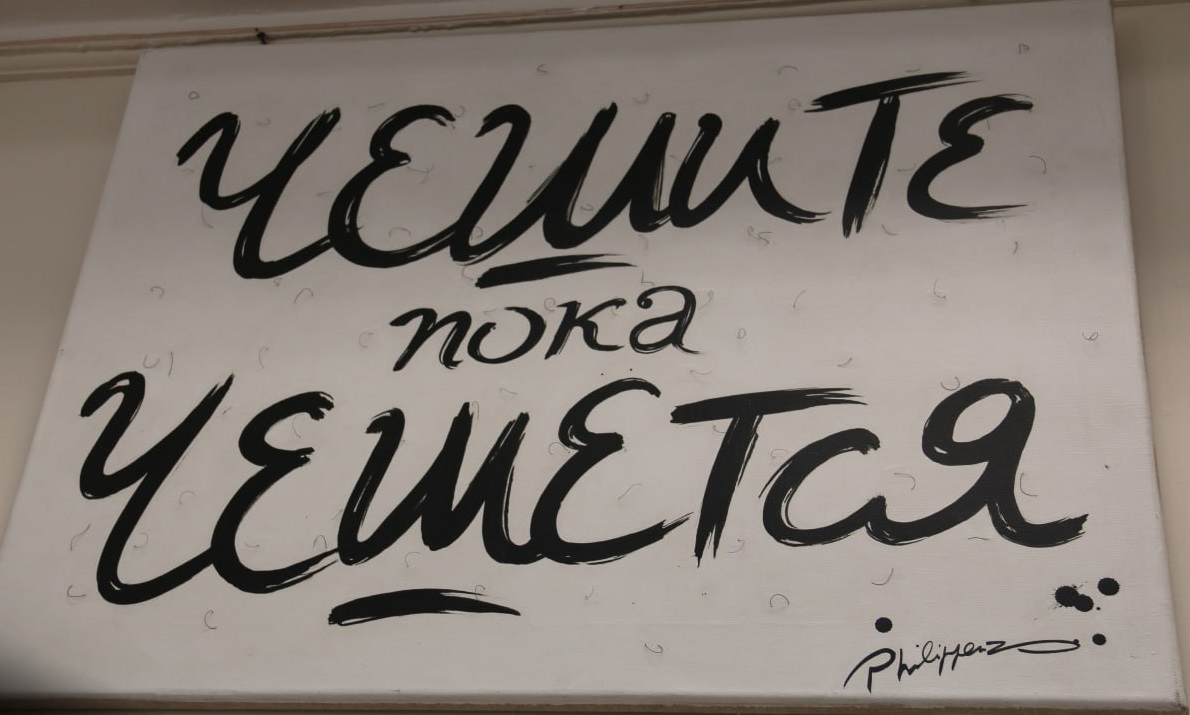 чешите
пока
чешется
Philippenzo